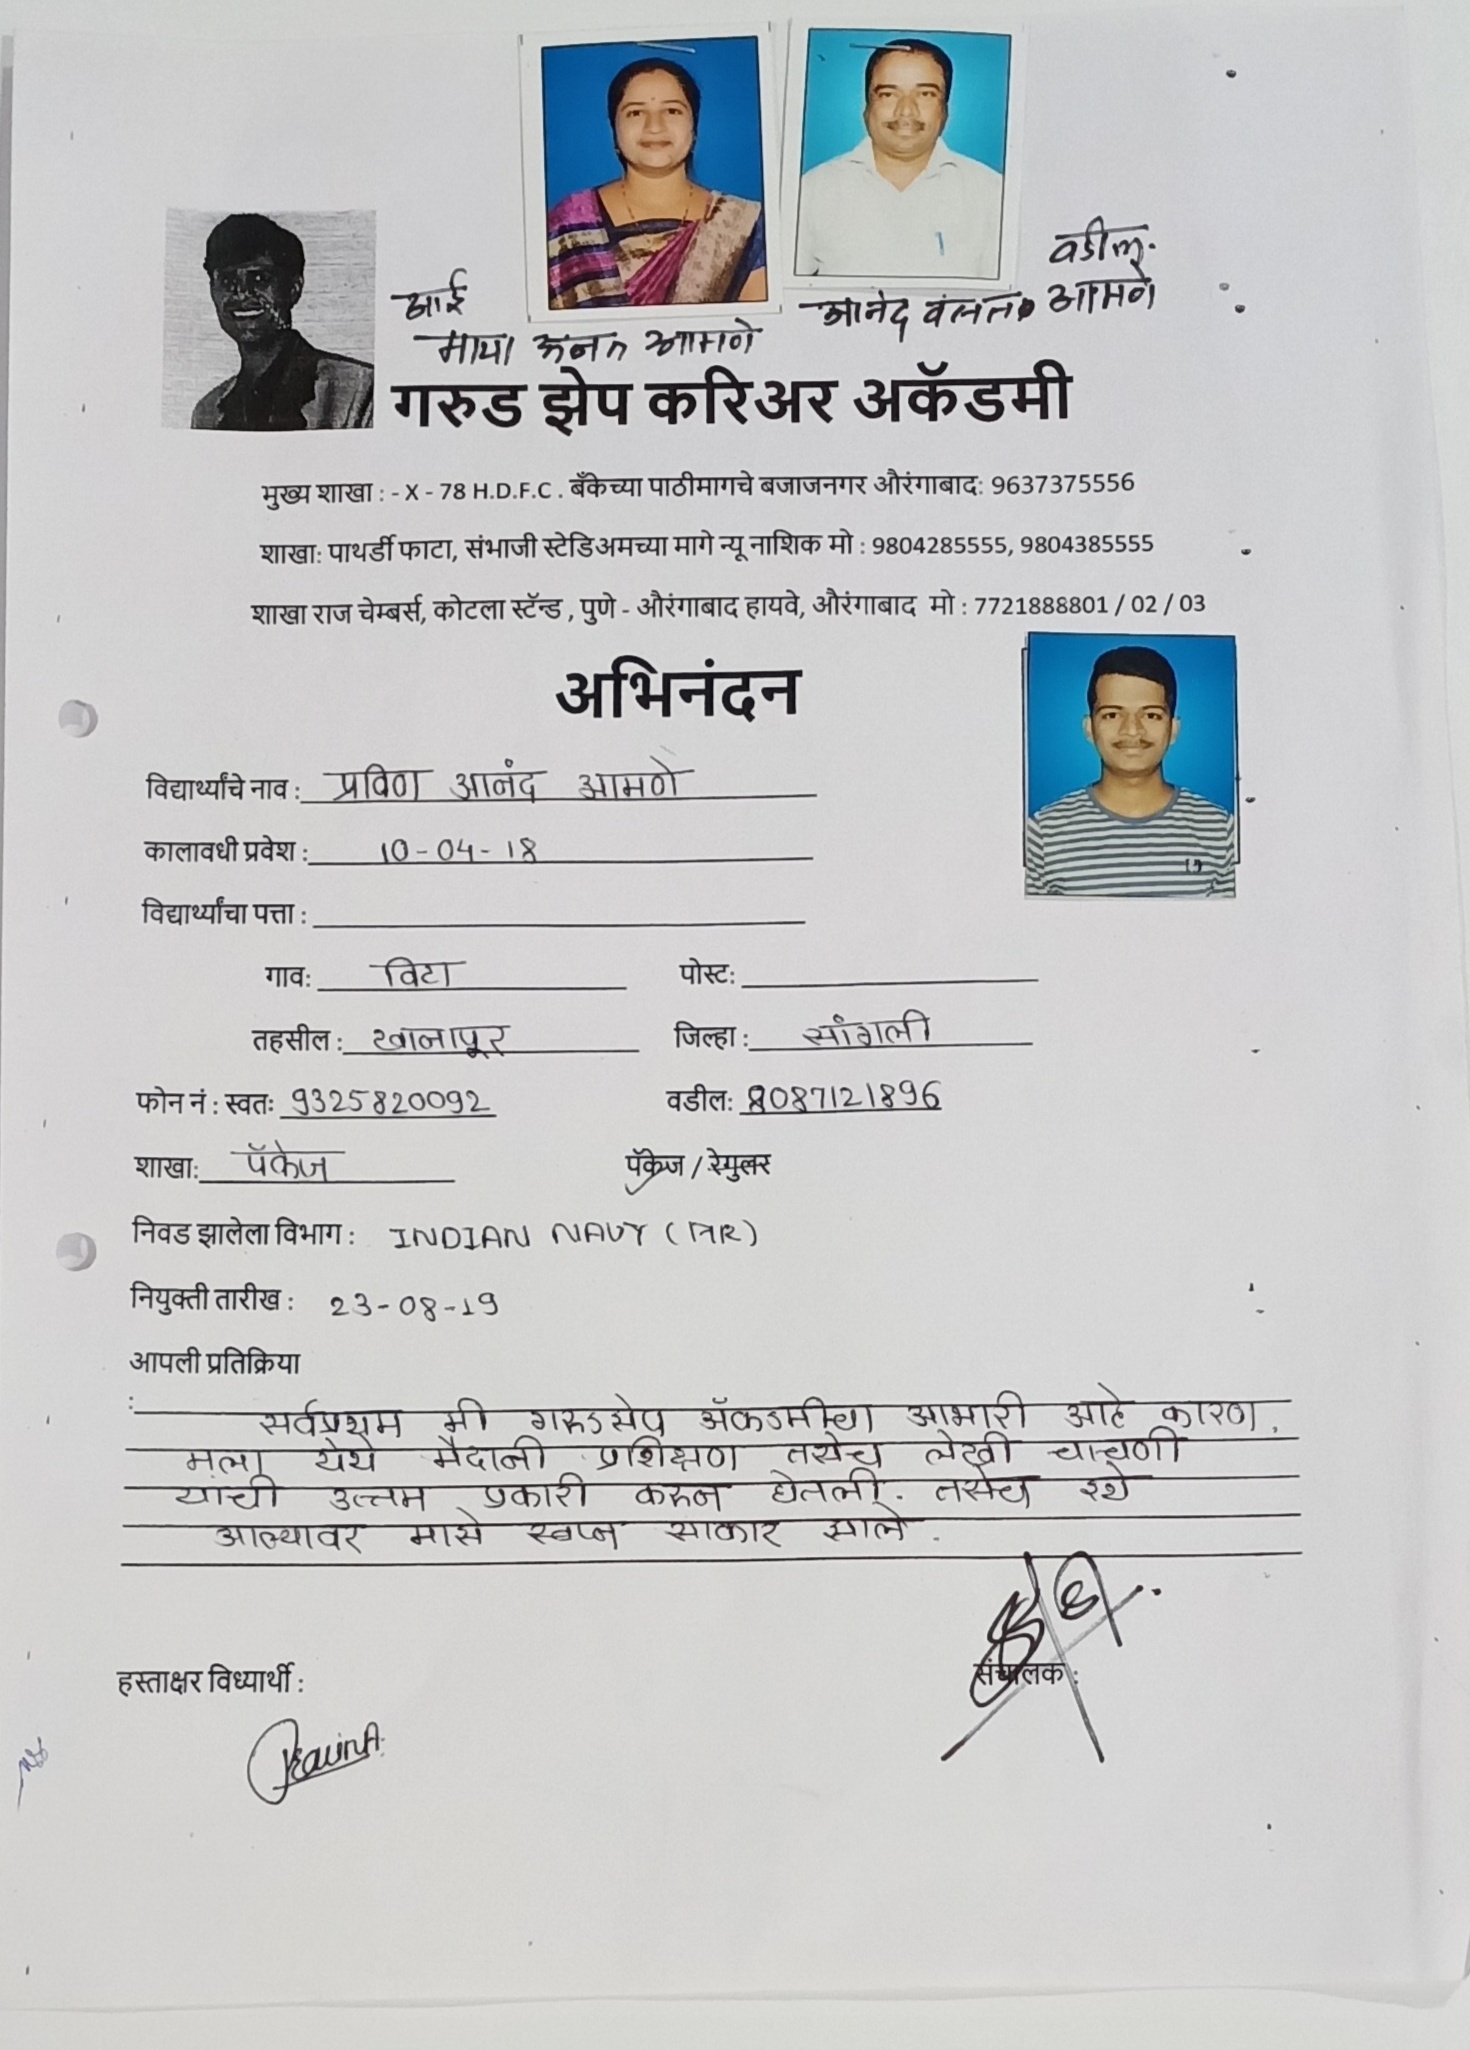 वडील.
आई
आनंद वसंत आमणे
माया आनंद आमणे
गरुड झेप करिअर अकॅडमी
मुख्य शाखा : - X - 78 H.D.F.C . बँकेच्या पाठीमागचे बजाजनगर औरंगाबाद: 9637375556
शाखा: पाथर्डी फाटा, संभाजी स्टेडिअमच्या मागे न्यू नाशिक मो : 9804285555, 9804385555
शाखा राज चेम्बर्स, कोटला स्टॅन्ड , पुणे - औरंगाबाद हायवे, औरंगाबाद मो : 7721888801 / 02 / 03
अभिनंदन
विद्यार्थ्यांचे नाव : प्रविण आनंद आमणे
कालावधी प्रवेश : 10-04-18
विद्यार्थ्यांचा पत्ता :
गाव: विटा पोस्ट:
तहसील : खानापूर जिल्हा : सांगली
फोन नं : स्वतः 9325820092 वडील: 8087121896
शाखा: पॅकेज पॅकेज / रेगुलर
निवड झालेला विभाग : INDIAN NAVY (AA)
नियुक्ती तारीख : 23-08-19
आपली प्रतिक्रिया
:
सर्वप्रथम मी गरुडझेप ॲकडमीचा आभारी आहे कारण.
मला येथे मैदानी प्रशिक्षण तसेच लेखी चाचणी
यांची उत्तम प्रकारी करुन घेतली. तसेच इथे
आल्यावर माझे स्वप्न साकार झाले.
हस्ताक्षर विध्यार्थी : संचालक :
PravinA.